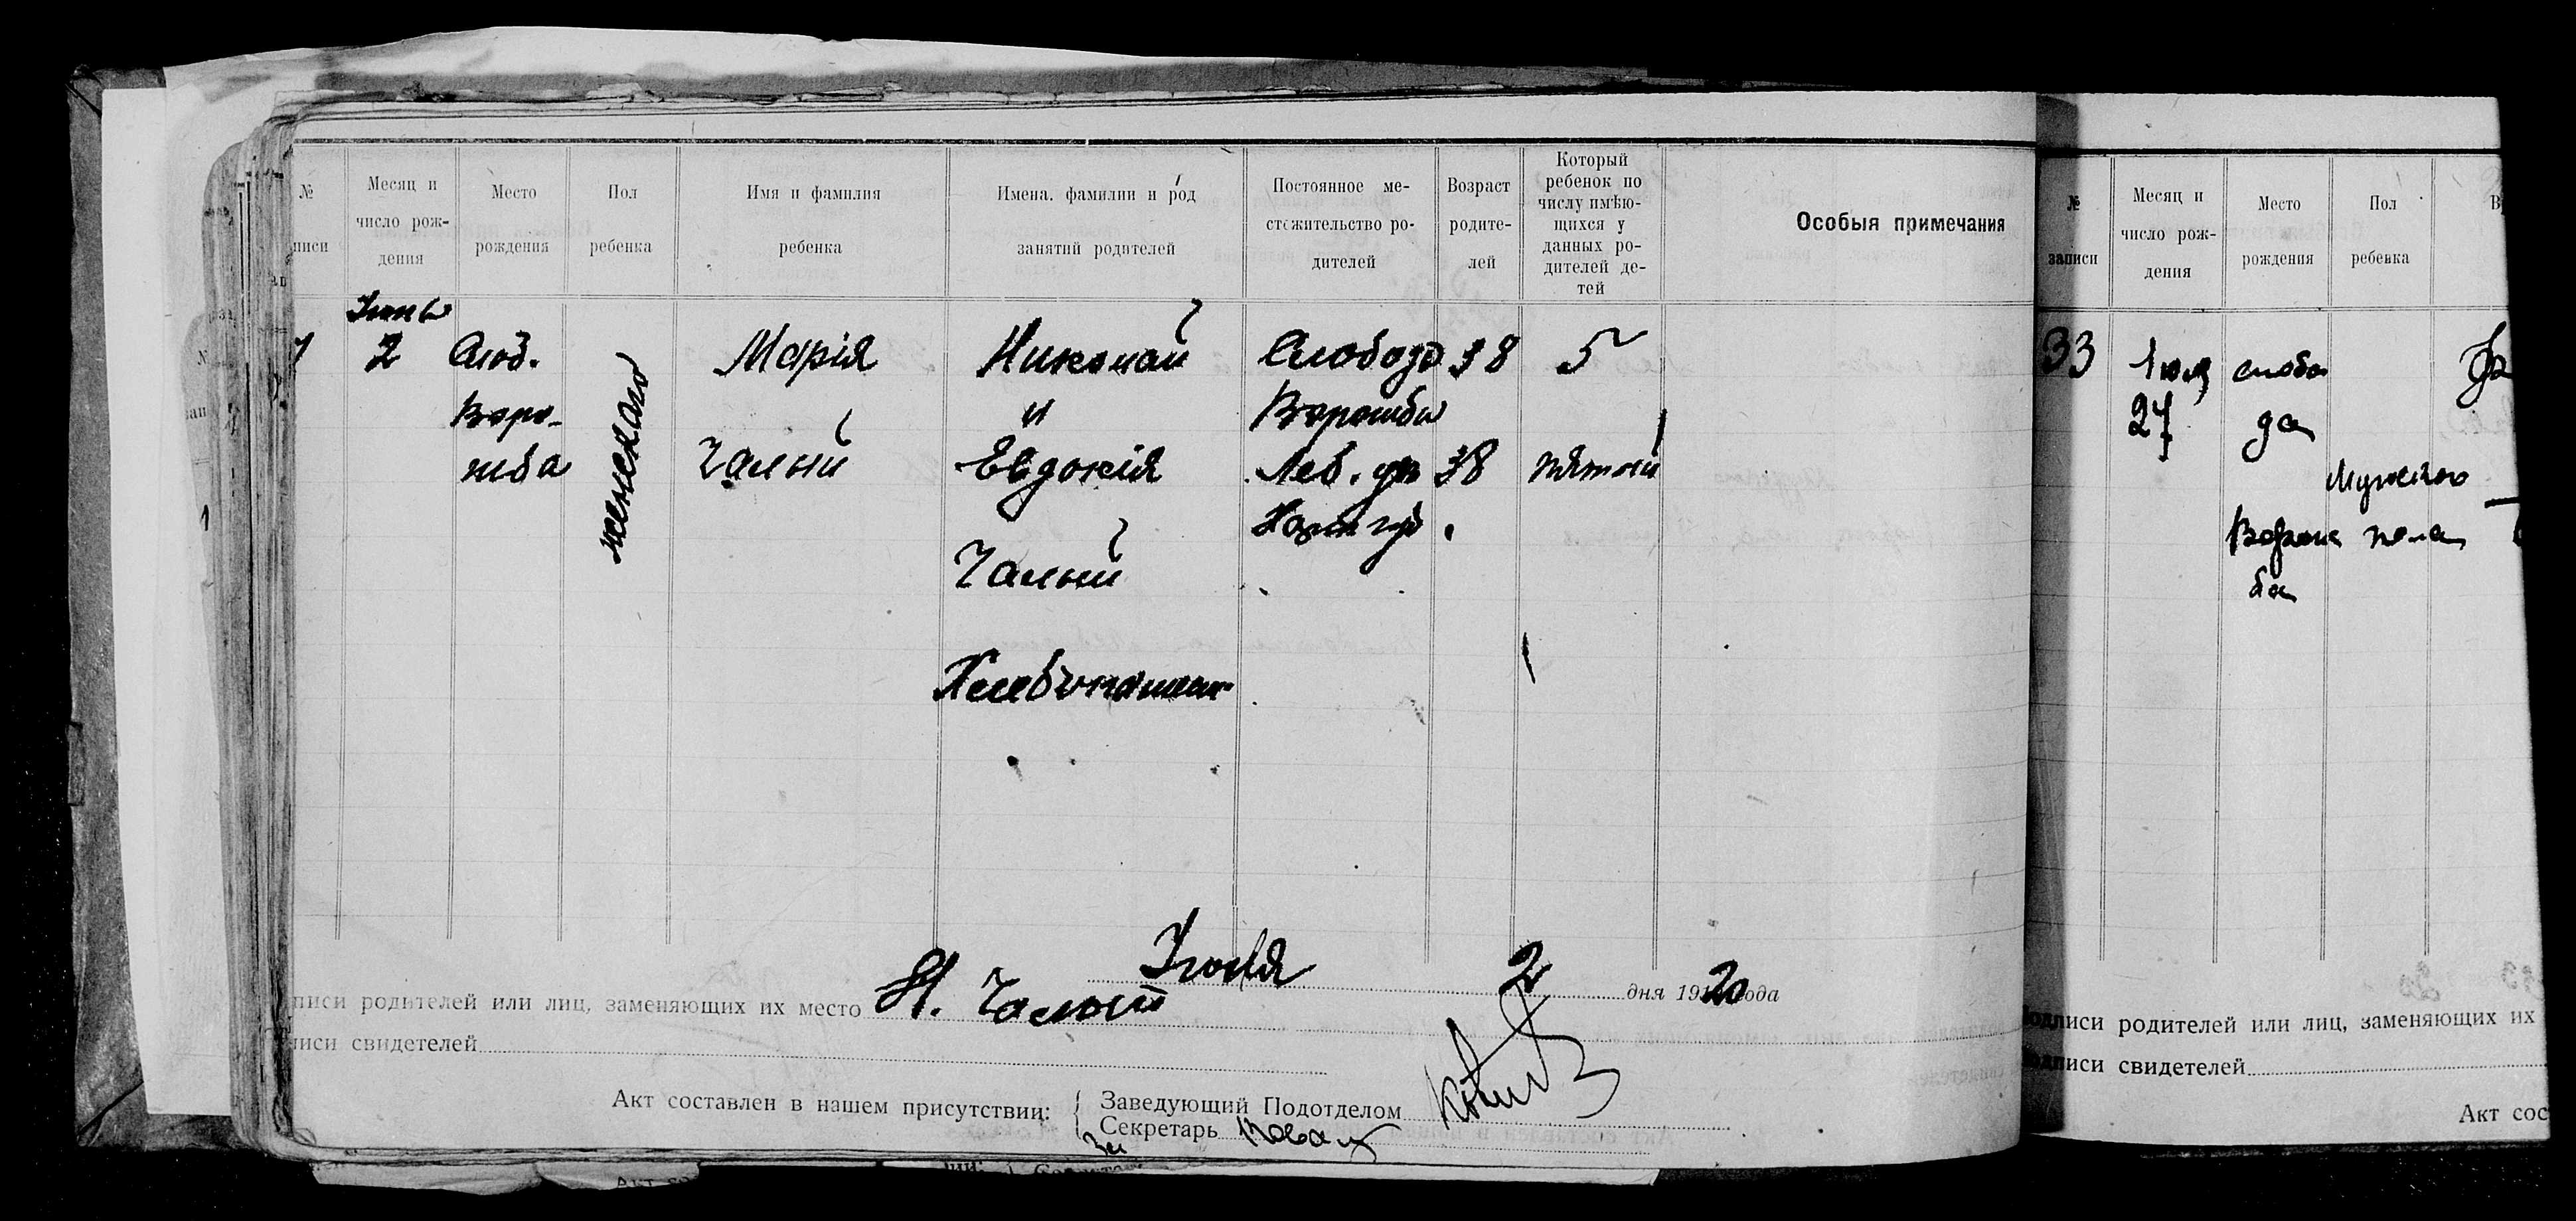 №
писи
Месяц и
число рож-
дения
Место
рождения
Пол
ребенка
Имя и фамилия
ребенка
Имена, фамилии и род
занятий родителей
Постоянное ме-
стожительство ро-
дителей
Возраст
родите-
лей
Который
ребенок по
числу имѣю-
щихся у
данных ро-
дителей де-
тей
Особыя примечания
Июнь
2
Слоб.
Воро-
жба
женскаго
Марія
Чалый
Николай
и
Евдокія
Чалый
Слобода
Ворожбы
Леб. у.
38
38
5
пятый
Июня 2 дня 1920 года
писи родителей или лиц, заменяющих их место Н. Чалый
писи свидетелей
Акт составлен в нашем присутствии:
Заведующий Подотделом
Секретарь
За
№
записи
Месяц и
число рож-
дения
Место
рождения
Пол
ребенка
33
Июля
27
слобо
да
Ворож
ба
Мужского
пола
одписи родителей или лиц, заменяющих их
одписи свидетелей
Акт сос